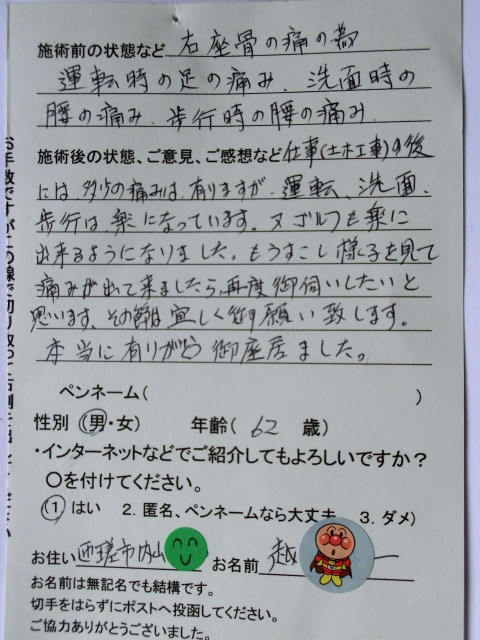 施術前の状態など 右座骨の痛の為
運転時の足の痛み、洗面時の
腰の痛み、歩行時の腰の痛み
施術後の状態、ご意見、ご感想など 仕事(土木工事)の後
には、多少の痛みは、有りますが、運転、洗面、
歩行は、楽になっています。又ゴルフも楽に
出来るようになりました。もうすこし様子を見て
痛みが出て来ましたら、再度御伺いしたいと
思います、その節は宜しく御願い致します。
本当に有りがとう御座居ました。
ペンネーム( )
性別 (男・女) 年齢( 62 歳)
・インターネットなどでご紹介してもよろしいですか？
○を付けてください。
(1 はい 2. 匿名、ペンネームなら大丈夫 3. ダメ)
お住い 匝瑳市内山 お名前 越
お名前は無記名でも結構です。
切手をはらずにポストへ投函してください。
ご協力ありがとうございました。